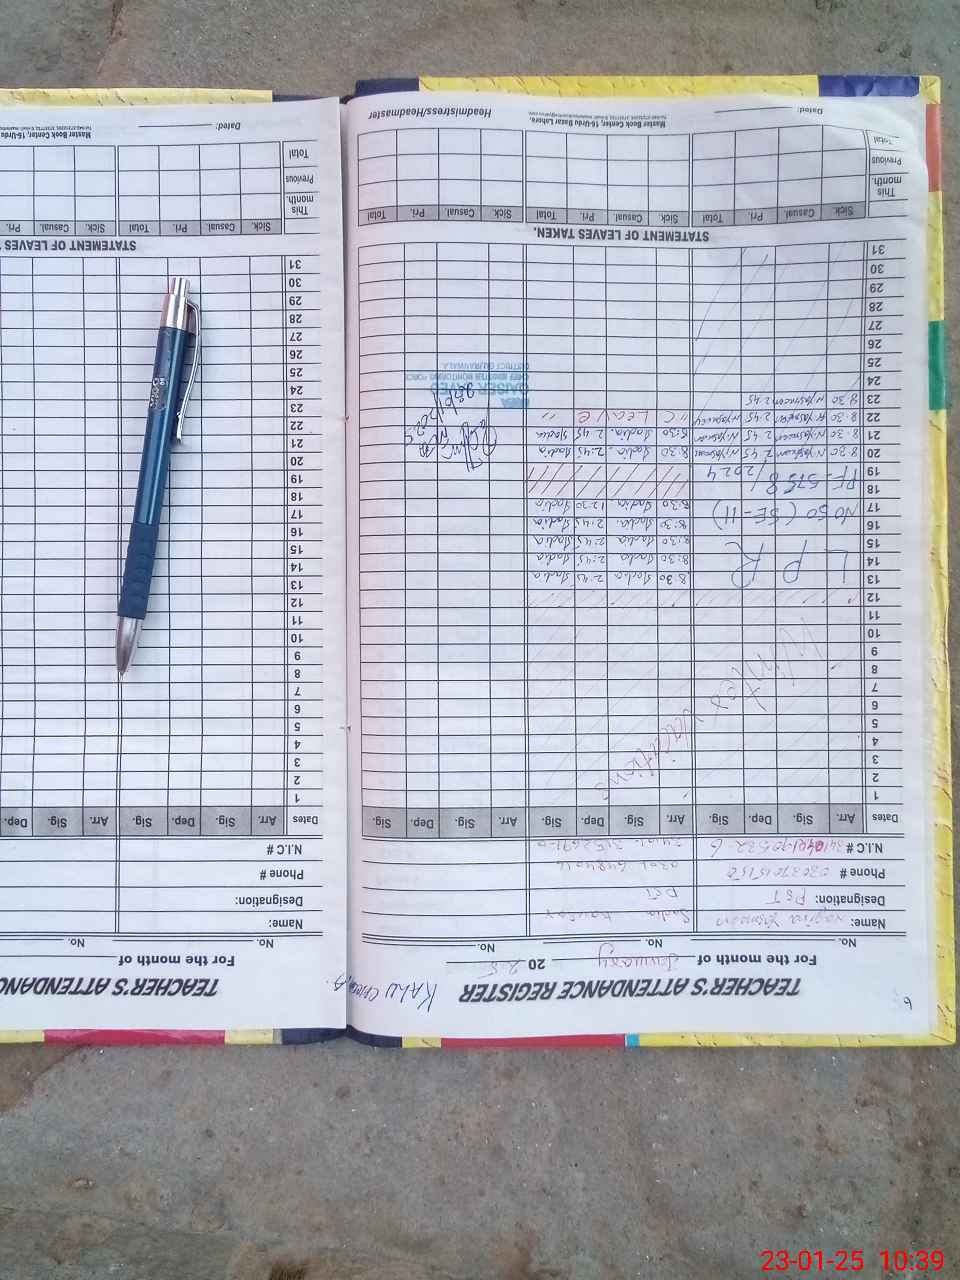 6
TEACHER'S ATTENDANCE REGISTER KALU CHIMA
For the month of January 2025
No. No. No.
Name: Nagina Yasmeen Sadia Kausar
Designation: PST
Phone # 03037015150
N.I.C #
Dates Arr. Sig. Dep. Sig. Arr. Sig. Dep. Sig. Arr. Sig. Dep. Sig.
1
2
3
4
5
6
7
8
9
10
11
12
Winter Vacations
13 8:30 Sadia 2:45 Sadia
14 L P R 8:30 Sadia 2:45 Sadia
15 8:30 Sadia 2:45 Sadia
16 8:30 Sadia 2:45 Sadia
17 NO 50 (SE-II) 8:30 Sadia 12:30 Sadia
18 PF-5758/2024
19
20 8:30 N.Yasmeen 2:45 N.Yasmeen 8:30 Sadia 2:45 Sadia
21 8:30 N.Yasmeen 2:45 N.Yasmeen 8:30 Sadia 2:45 Sadia
22 8:30 N.Yasmeen 2:45 N.Yasmeen " C LEAVE "
23 8:30 N.Yasmeen 2:45
24
25
26
27
28
29
30
31
QAISER
CHIEF MINISTER MONITORING FORCE
DISTRICT GUJRANWALA
STATEMENT OF LEAVES TAKEN.
Sick. Casual. Pri. Total Sick. Casual. Pri. Total Sick. Casual. Pri. Total
This month.
Previous
Total
Master Book Center, 16-Urdu Bazar Lahore.
Dated: Headmistress/Headmaster
TEACHER'S ATTENDANC
For the month of
No. No.
Name:
Designation:
Phone #
N.I.C #
Dates Arr. Sig. Dep. Sig. Arr. Sig. Dep.
1
2
3
4
5
6
7
8
9
10
11
12
13
14
15
16
17
18
19
20
21
22
23
24
25
26
27
28
29
30
31
STATEMENT OF LEAVES
Sick. Casual. Pri. Total Sick. Casual. Pri.
This month.
Previous
Total
Master Book Center, 16-Urdu
Dated:
23-01-25 10:39